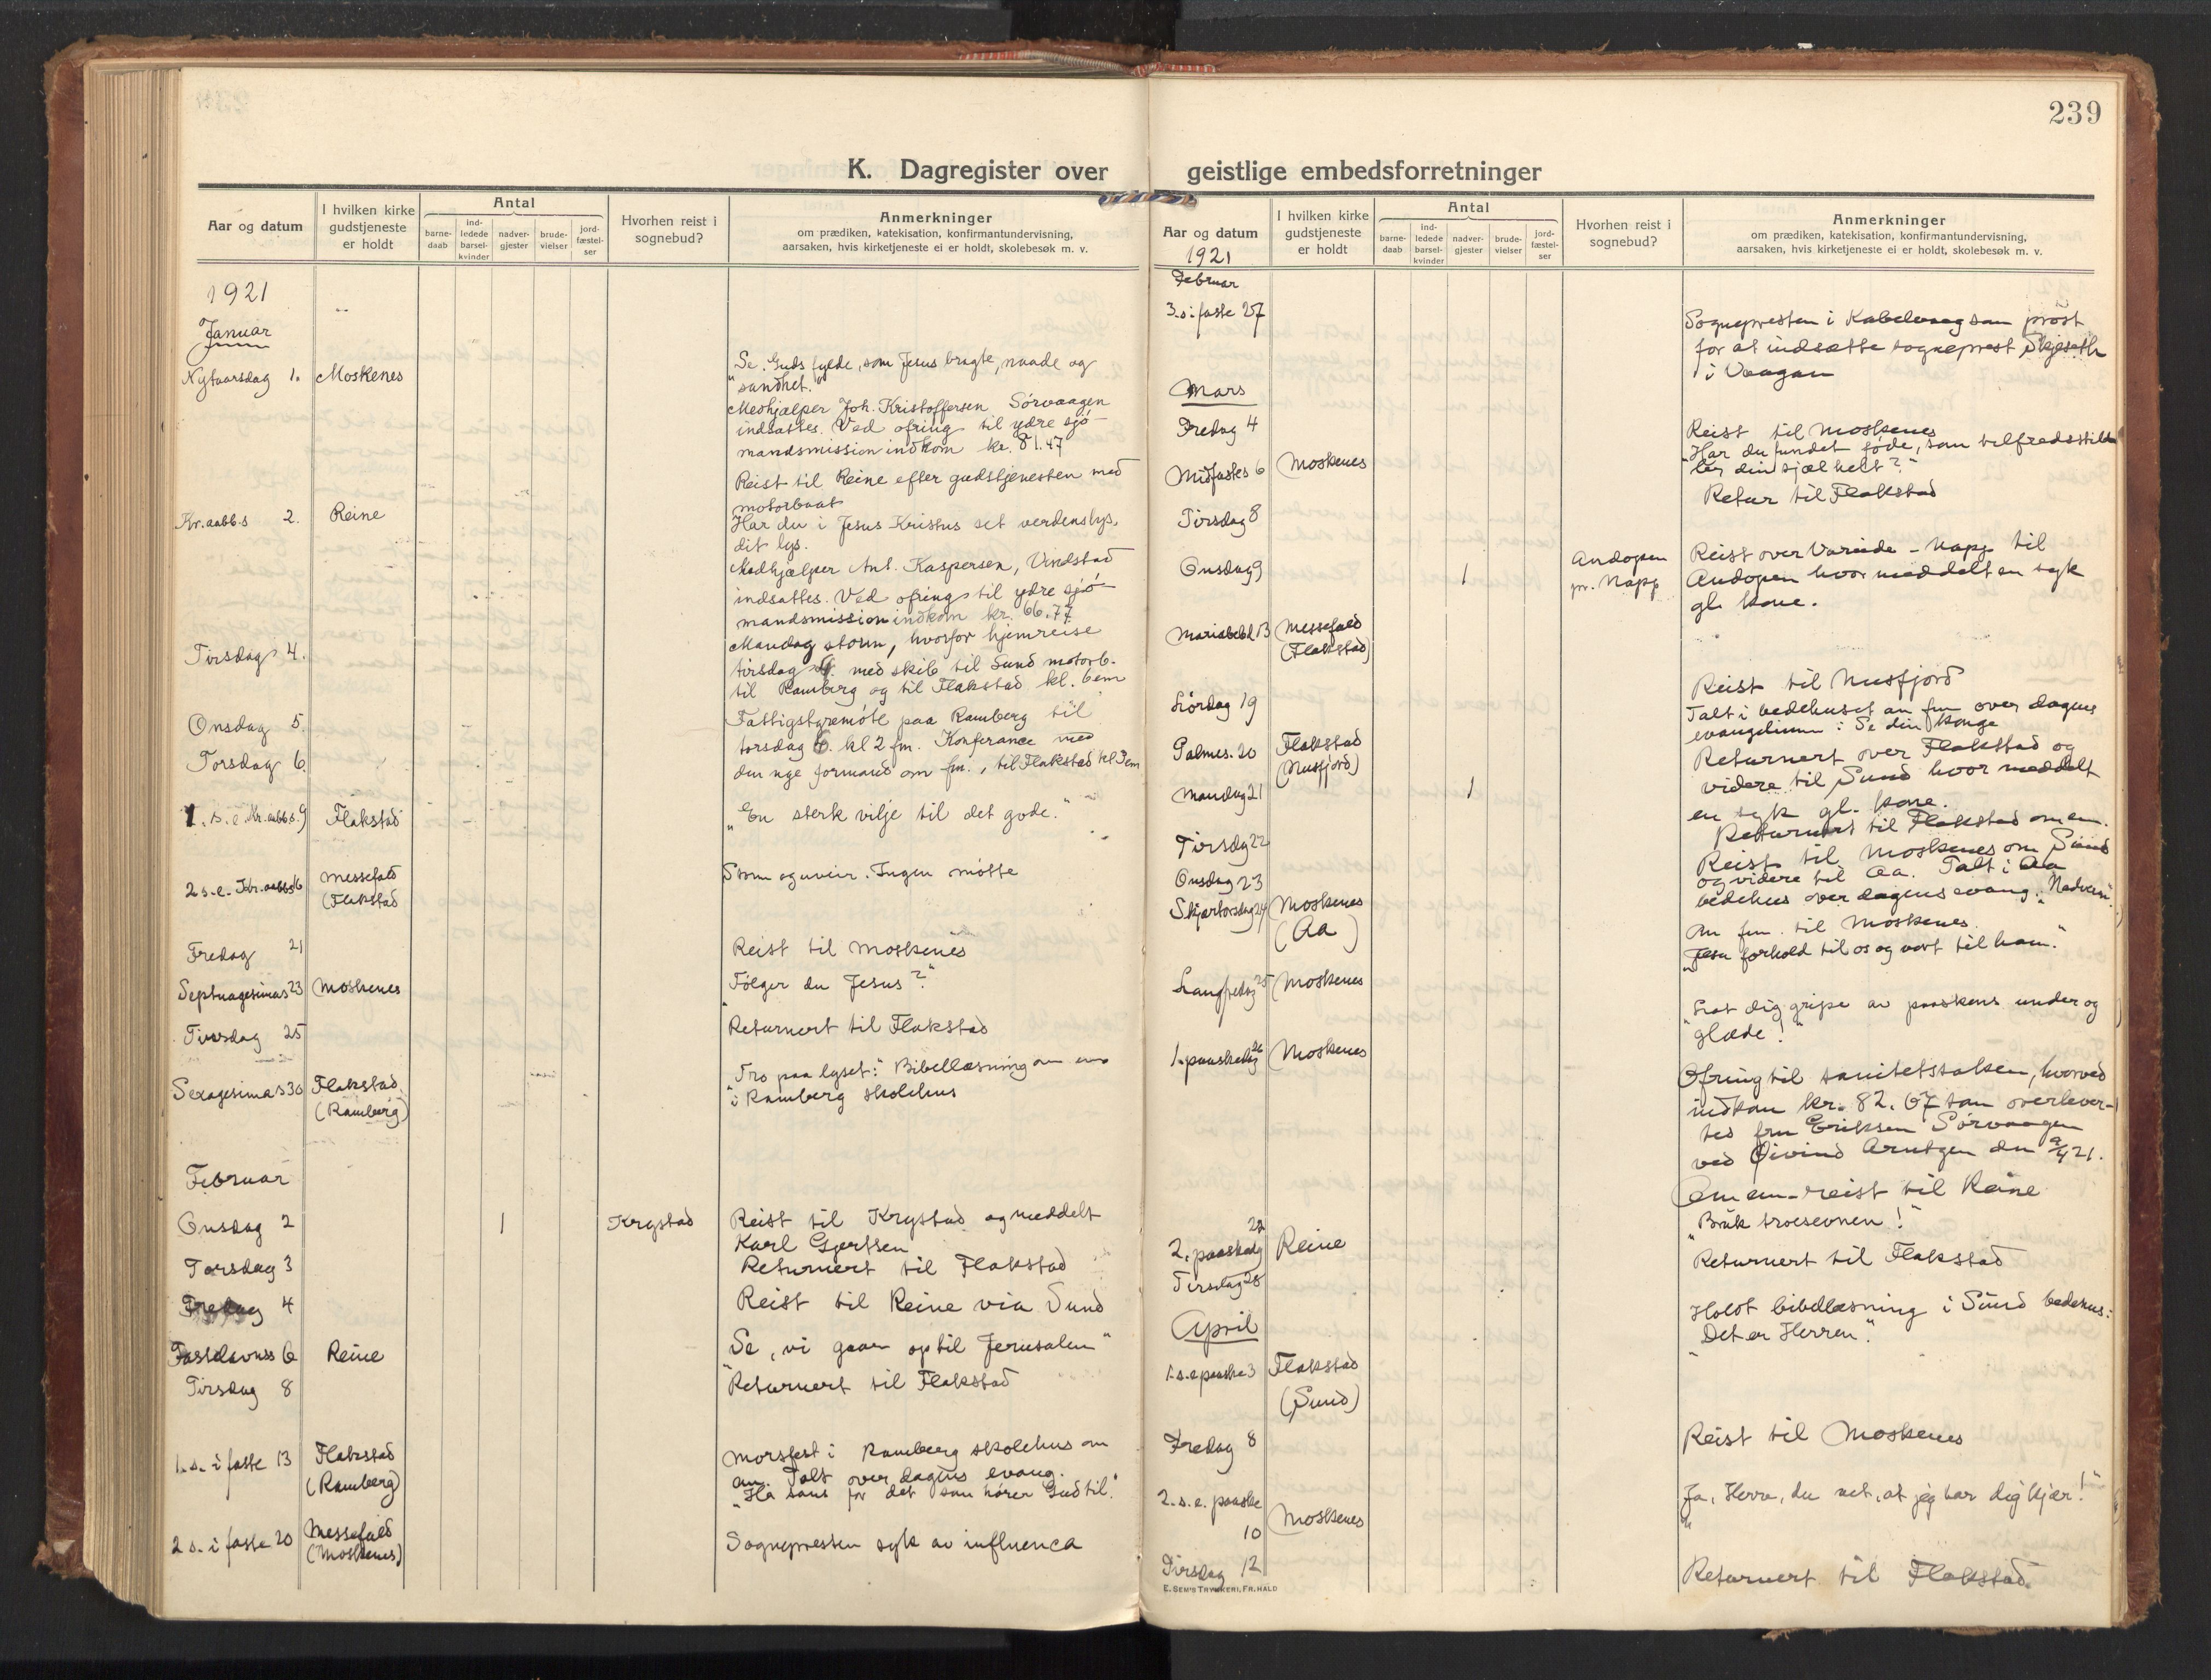 239
K. Dagregister over geistlige embedsforretninger
Aar og datum
I hvilken kirke gudstjeneste er holdt
Antal
barne-daab
ind-ledede barsel-kvinder
nadver-gjester
brude-vielser
jord-fæstel-ser
Hvorhen reist i sognebud?
Anmerkninger
om prædiken, katekisation, konfirmantundervisning,
aarsaken, hvis kirketjeneste ei er holdt, skolebesøk m. v.
1921
Januar
Nytaarsdag 1. Moskenes
"Se, Guds fylde, som Jesus bragte, naade og
sandhet."
Medhjælper Joh. Kristoffersen Sörvaagen
indsattes. Ved ofring til ydre sjö-
mandsmission indkom kr. 81.47
Reist til Reine efter gudstjenesten med
motorbaat
Kr. aabb.s 2. Reine
Har du i Jesus Kristus set verdens lys,
dit lys.
Medhjælper Ant. Kaspersen, Vindstad
indsattes. Ved ofring til ydre sjö-
mandsmission indkom kr. 66.77
Tirsdag 4.
Mandag storm, hvorfor hjemreise
tirsdag 4. med skib til Sund motorb.
til Ramberg og til Flakstad kl. 6 em
Onsdag 5.
Fattigstyremöte paa Ramberg til
Torsdag 6.
torsdag 6. kl 2 fm. Konferance med
den nye formand om fm., til Flakstad kl 7 em
1. s. e. Kr. aabb.s. 9 Flakstad
"En sterk vilje til det gode."
2 s. e. Kr. aabb.s 16 Messefald (Flakstad
Storm og uveir. Ingen mötte
Fredag 21
Reist til Moskenes
Septuagesimas 23 Moskenes
"Fölger du Jesus?"
Tirsdag 25
Returnert til Flakstad
Sexagesimas 30 Flakstad (Ramberg)
"Tro paa lyset:" Bibellæsning om em
i Ramberg skolehus
Februar
Onsdag 2 1 Krystad
Reist til Krystad og meddelt
Karl Gjertsen
Torsdag 3
Returnert til Flakstad
Fredag 4
Reist til Reine via Sund
Fastelavnss 6 Reine
"Se, vi gaar op til Jerusalem"
Tirsdag 8
Returnert til Flakstad
1. s. i faste 13 Flakstad (Ramberg)
Morsfest i Ramberg skolehus om
em. Talt over dagens evang.
"Ha sans for det som hörer Gud til."
2 s. i faste 20 Messefald (Moskenes)
Sognepresten syk av influenca
Aar og datum
I hvilken kirke gudstjeneste er holdt
Antal
barne-daab
ind-ledede barsel-kvinder
nadver-gjester
brude-vielser
jord-fæstel-ser
Hvorhen reist i sognebud?
Anmerkninger
om prædiken, katekisation, konfirmantundervisning,
aarsaken, hvis kirketjeneste ei er holdt, skolebesøk m. v.
1921
Februar
3. s. i faste 27
Sognepresten i Kabelvaag som pröst
for at indsætte sogneprest Skjeseth
i Vaagan
Mars
Fredag 4
Reist til Moskenes
Midfastes 6 Moskenes
"Har du fundet föde, som tilfredsstil-
ler din sjæl helt?"
Tirsdag 8
Retur til Flakstad
Onsdag 9 1 Andopen pr. Napp
Reist over Vareide - Napp til
Andopen hvor meddelt en syk
gl. kone.
Mariabebd. 13 Messefald (Flakstad)
Lördag 19
Reist til Nusfjord
Palmes. 20 Flakstad (Nusfjord)
Talt i bedehuset om fm over dagens
evangelium: Se din konge
Mandag 21 1
Returnert over Flakstad og
videre til Sund hvor meddelt
en syk gl. kone.
Tirsdag 22
Returnert til Flakstad om em.
Onsdag 23
Reist til Moskenes om Sund
og videre til Aa. Talt i Aa
Skjærtorsdag 24 Moskenes (Aa)
bedehus over dagens evang.: Nadveren.
Om fm. til Moskenes.
Langfredag 25 Moskenes
"Jesu forhold til os og vort til ham."
1. paaskedag 26 Moskenes
"Lat dig gripe av paaskens under og
glæde!"
Ofring til sanitetssaken, hvorved
indkom kr. 82.67 som overlever-
tes fru Eriksen Sörvaagen
ved Öivind Arntzen den 9/4 21.
Om em. reist til Reine
2. paaskedg 27 Reine
"Bruk troesevnen!"
Tirsdag 28
Returnert til Flakstad
April
1. s. e paaske 3 Flakstad (Sund)
Holdt bibellæsning i Sund bedehus:
"Det er Herren."
Fredag 8
Reist til Moskenes
2. s. e. paaske 10 Moskenes
"Ja, Herre, du vet, at jeg har dig kjær!"
Tirsdag 12
Returnert til Flakstad.
E. SEM'S TRYKKERI, FR.HALD